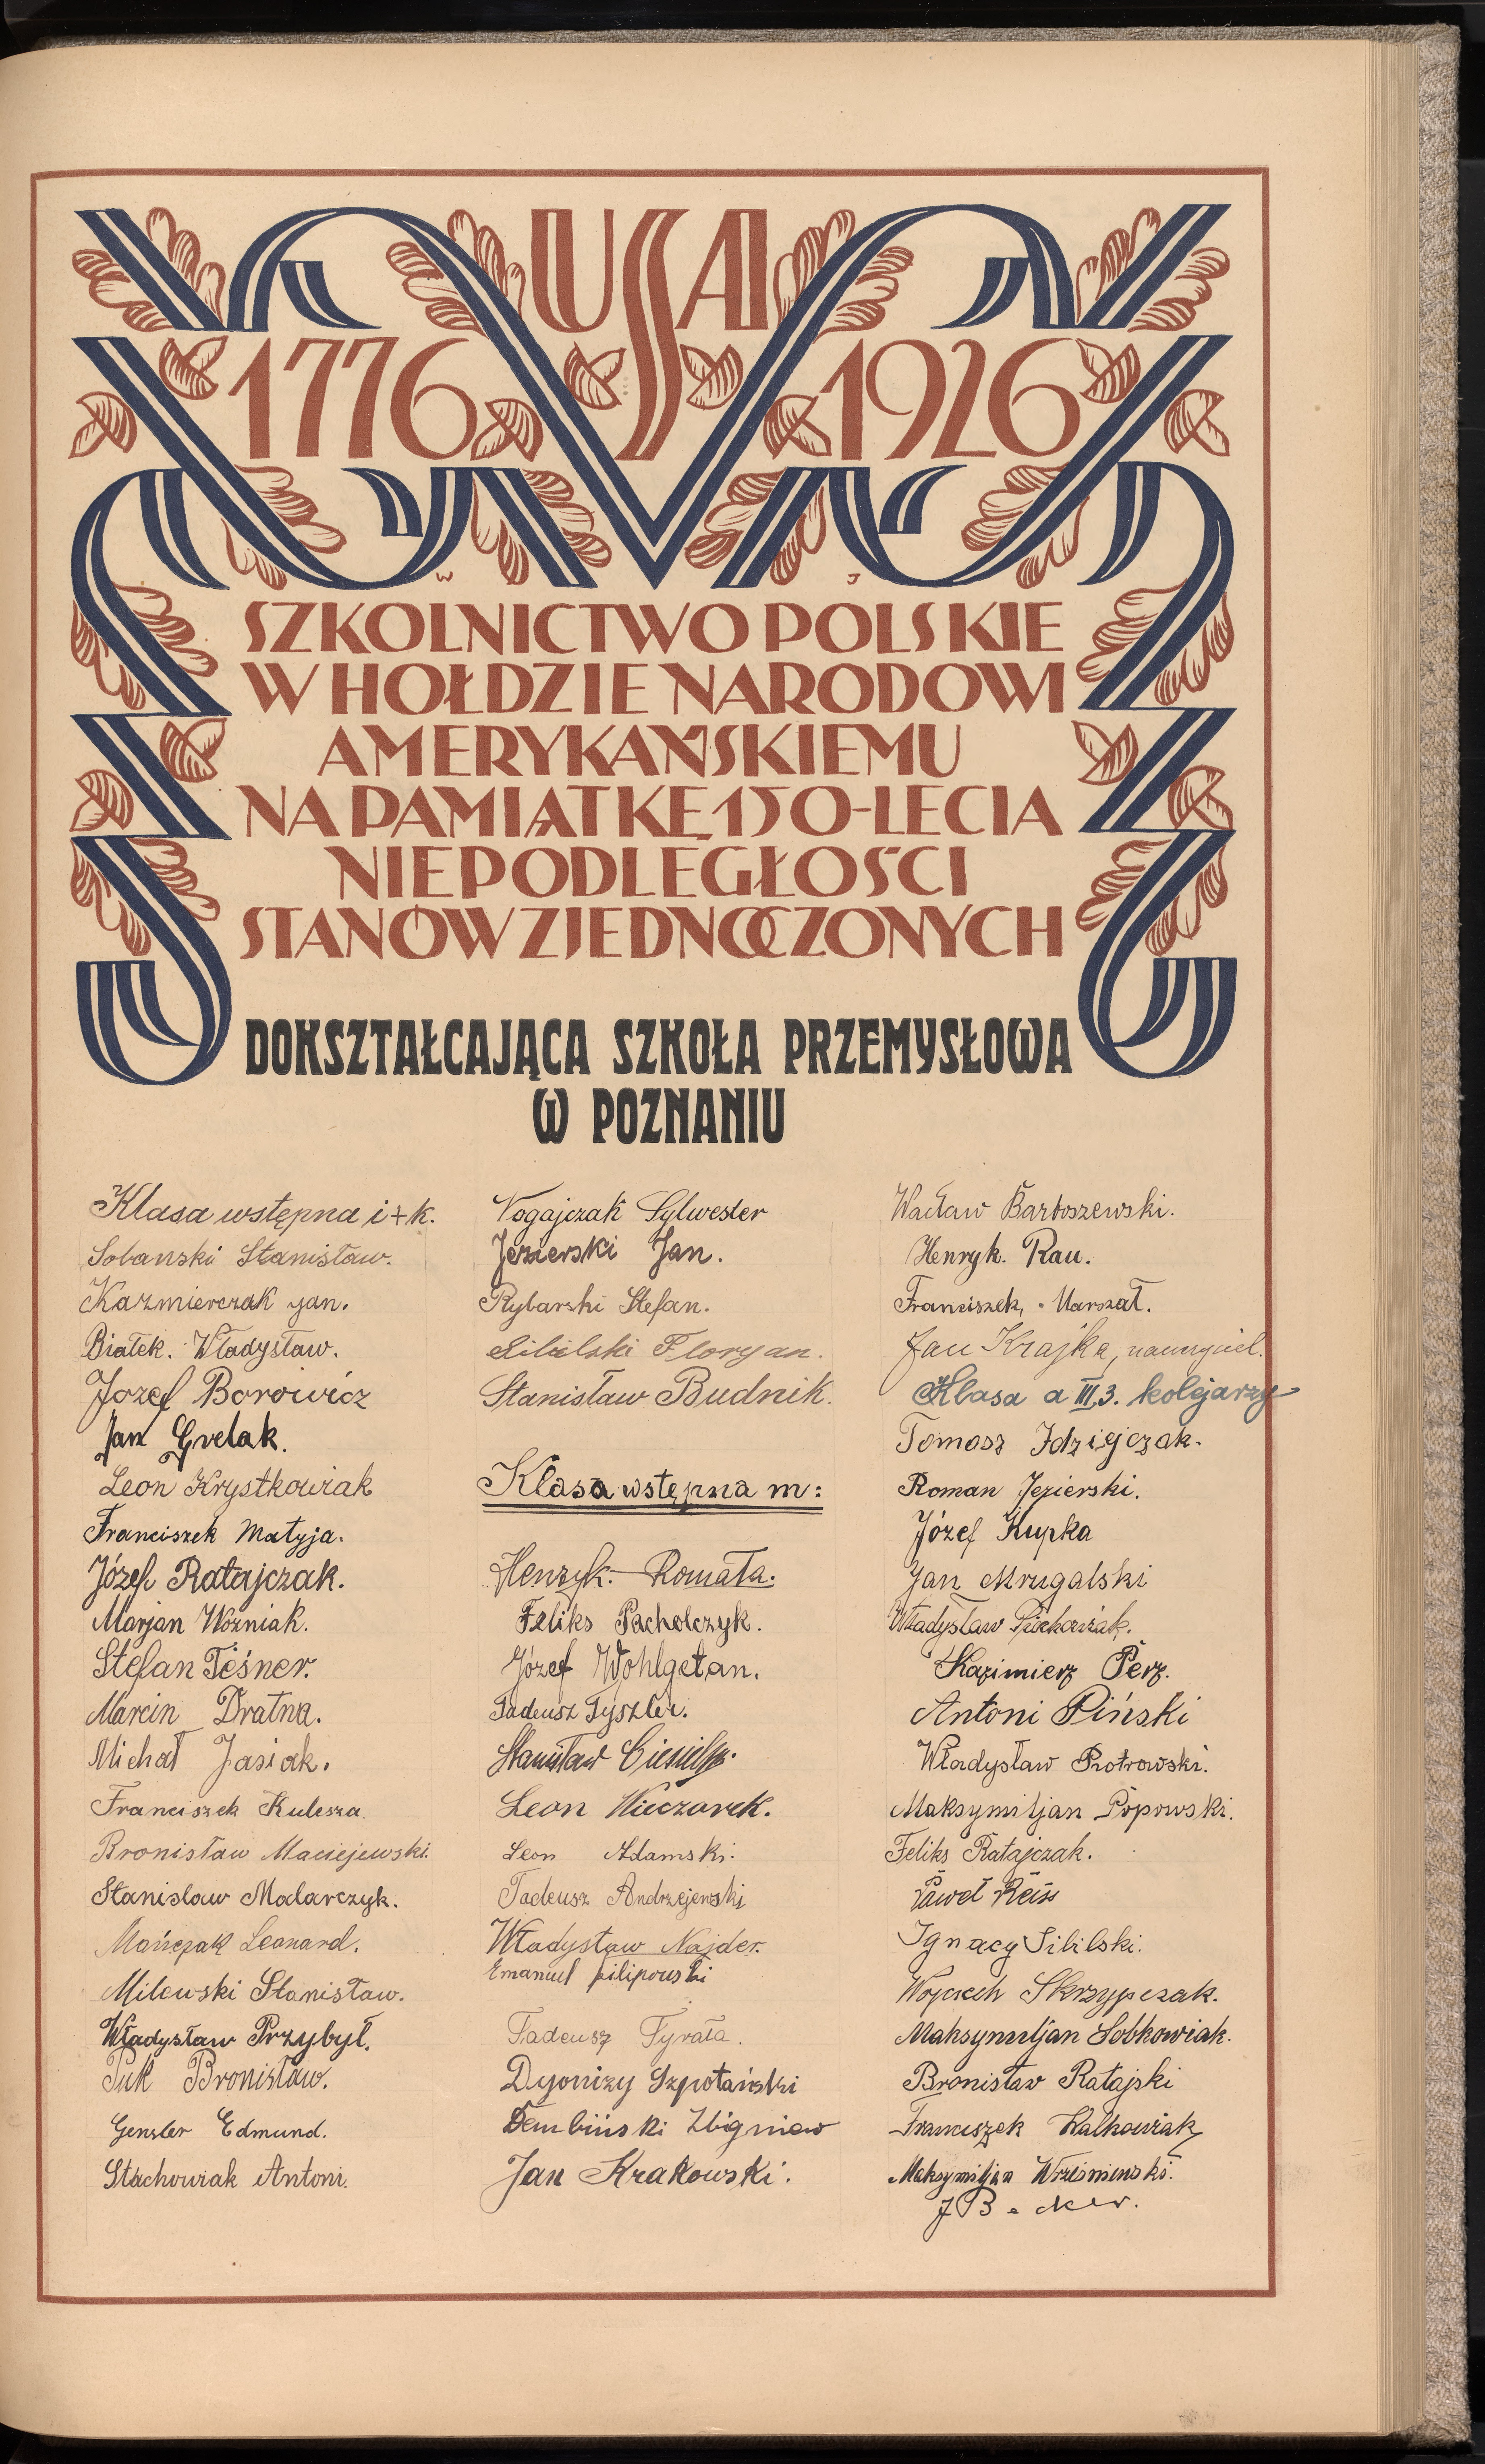 USA
1776 1926
W J
SZKOLNICTWO POLSKIE
W HOŁDZIE NARODOWI
AMERYKAŃSKIEMU
NA PAMIĄTKĘ 150-LECIA
NIEPODLEGŁOŚCI
STANÓW ZJEDNOCZONYCH
DOKSZTAŁCAJĄCA SZKOŁA PRZEMYSŁOWA
W POZNANIU
Klasa wstępna i + k.
Sobanski Stanisław.
Kazmierczak Jan.
Białek. Władysław.
Jozef Borowicz
Jan Grelak.
Leon Krystkowiak
Franciszek Matyja.
Józef Ratajczak.
Marjan Woźniak.
Stefan Téśner.
Marcin Dratna.
Michał Jasiak.
Franciszek Kulesza.
Bronisław Maciejewski.
Stanislaw Malarczyk.
Mańczak Leonard.
Milewski Stanisław.
Władysław Przybył.
Puk Bronisław.
Gensler Edmund.
Stachowiak Antoni.
Nogajczak Sylwester
Jezierski Jan.
Rybarski Stefan.
Sililski Floryan.
Stanisław Budnik.
Klasa wstępna m:
Henryk. Romała.
Feliks Pacholczyk.
Józef Wohlgetan.
Tadeusz Tyszler.
Stanisław
Leon Wieczorek.
Leon Adamski.
Tadeusz Andrzejewski
Władysław Najder.
Emanuel Filipowski
Tadeusz Tyrała.
Dyonizy Szpotański
Dembiński Zbigniew
Jan Krakowski.
Wacław Bartoszewski.
Henryk. Rau.
Franciszek, Marszał.
Jan Krajka, nauczyciel.
Klasa a III,3. kolejarzy
Tomasz Idziejczak.
Roman Jezierski.
Józef Kupka
Jan Mrugalski
Władysław Piechowiak.
Kazimierz Perz.
Antoni Piński
Władysław Piotrowski.
Maksymiljan Popowski.
Feliks Ratajczak.
Paweł Reiss
Ignacy Sililski.
Wojciech Skrzypczak.
Maksymiljan Sobkowiak.
Bronisław Ratajski
Franciszek Walkowiak
Maksymiljan Wrześniewski.